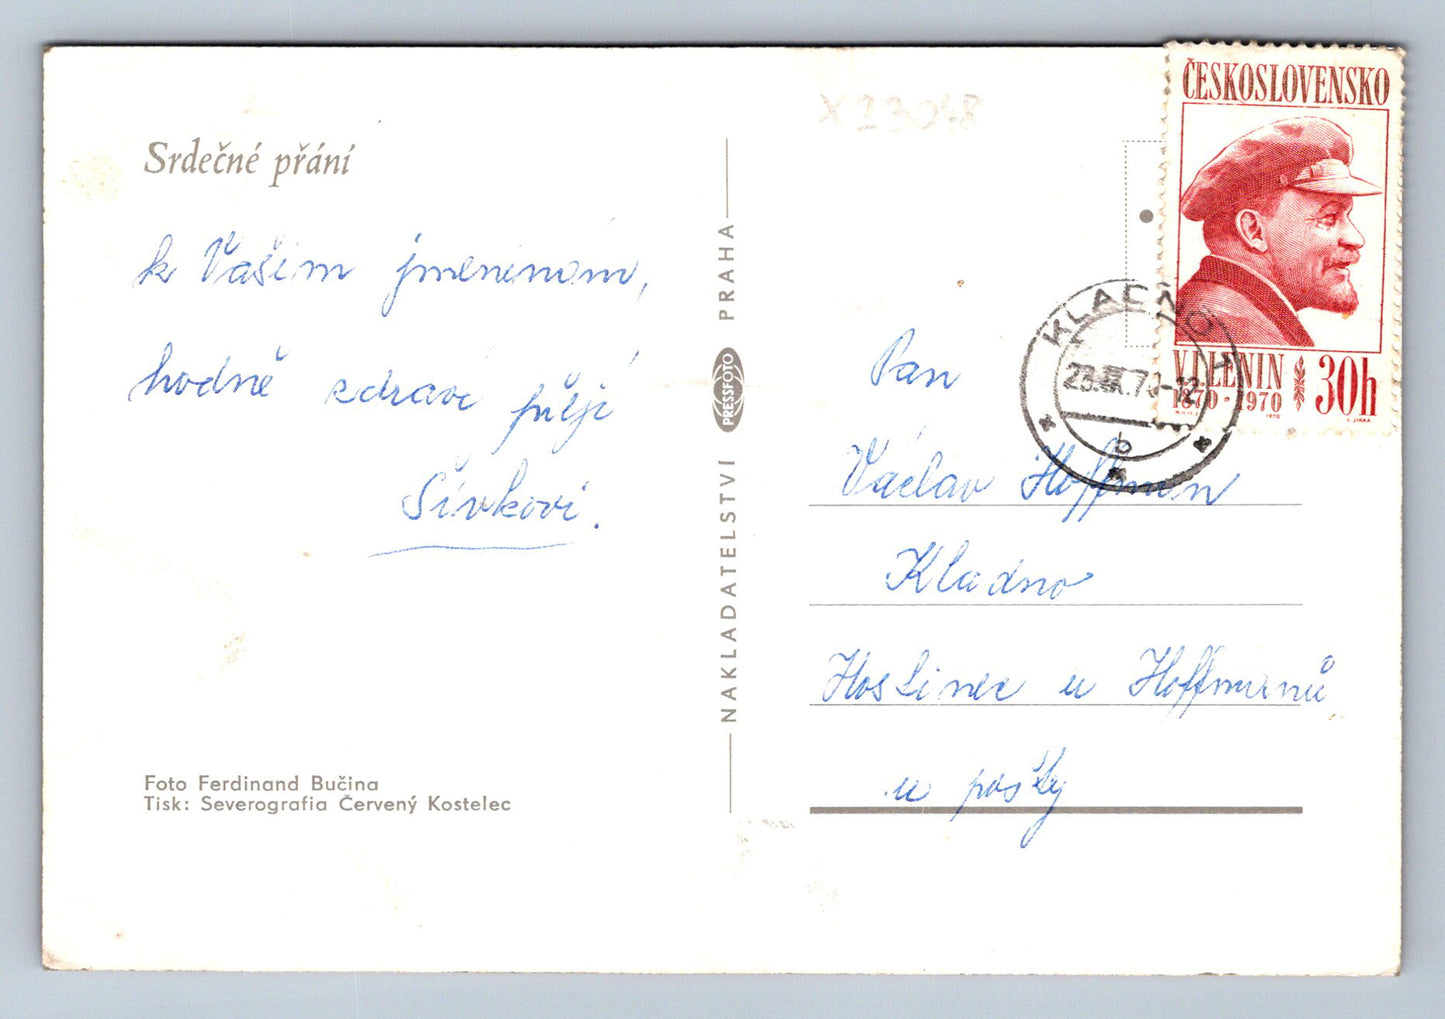 Srdečné přání
k Vašim jmeninám,
hodně zdraví přejí
Sivkovi.
Foto Ferdinand Bučina
Tisk: Severografia Červený Kostelec
NAKLADATELSTVÍ PRESSFOTO PRAHA
X23048
ČESKOSLOVENSKO
V.I.LENIN
1870 · 1970
30h
KLADNO 1
b
Pan
Václav Hoffman
Kladno
Hostinec u Hoffmanů
u pošty